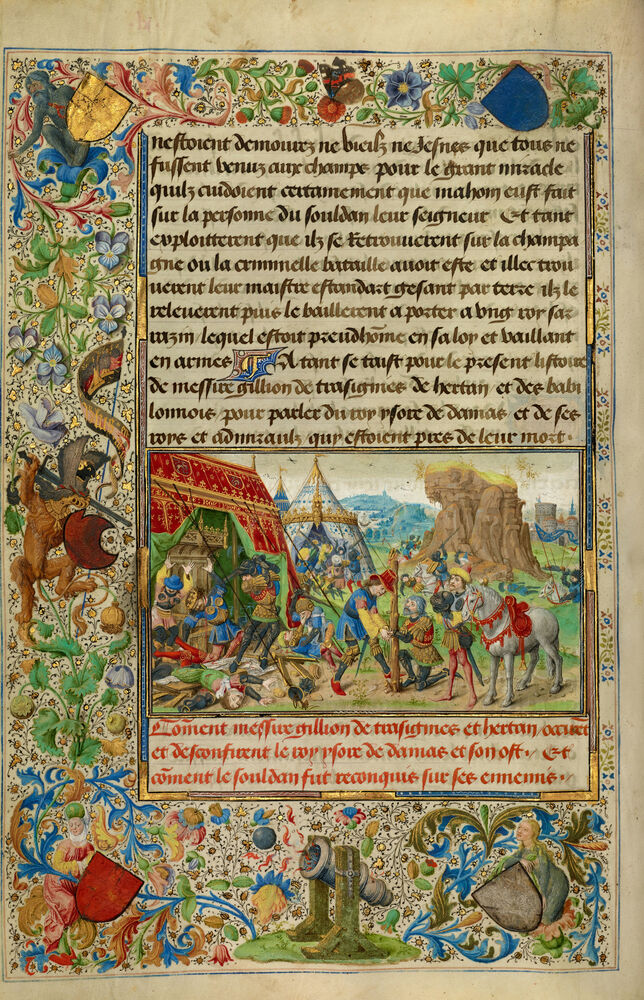 nestoient demourez ne vieulz ne Jesnes que tous ne
fussent venuz aux champs pour le grant miracle
quilz cuidoient certainement que mahom eust fait
sur la personne du souldan leur seigneur Et tant
exploitterent que ilz se Retrouuerent sur la champai
gne ou la criminelle bataille auoit este et illec trou
uerent leur maistre estandart gesant par terre ilz le
releuerent puis le baillerent a porter a vng roy sar
razin / lequel estoit preudhõme en sa loy et vaillant
en armes A tant se taist pour le present listoire
de messire gillion de trasignies de hertan et des babi
lonnois pour parler du roy ysore de damas et de ses
roys et admiraulx quy estoient pres de leur mort .
Coment messire gillion de trasignies et hertan occirẽt
et desconfirent le roy ysore de damas et son ost . Et
cõment le souldan fut reconquis sur ses ennemis .